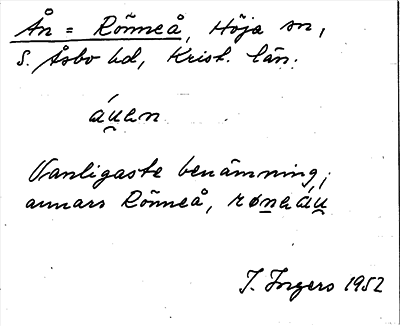 Ån = Rönneå, Höja sn,
S. Åsbo hd, Krist. län.
áu̯ən
Vanligaste benämning;
annars Rönneå, rønəáu̯
I. Ingers 1952